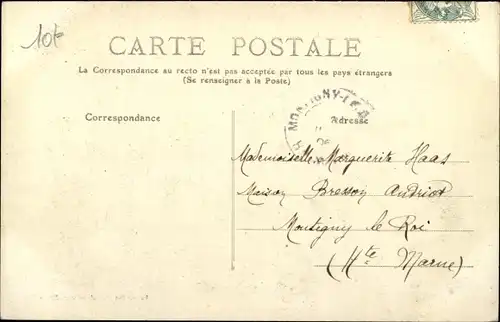 10f
CARTE POSTALE
La Correspondance au recto n'est pas acceptée par tous les pays étrangers
(Se renseigner à la Poste)
Correspondance
Adresse
MONTIGNY-LE-R
Mademoiselle Marguerite Haas
Maison Bresson Andriot
Montigny le Roi
(Hte Marne)